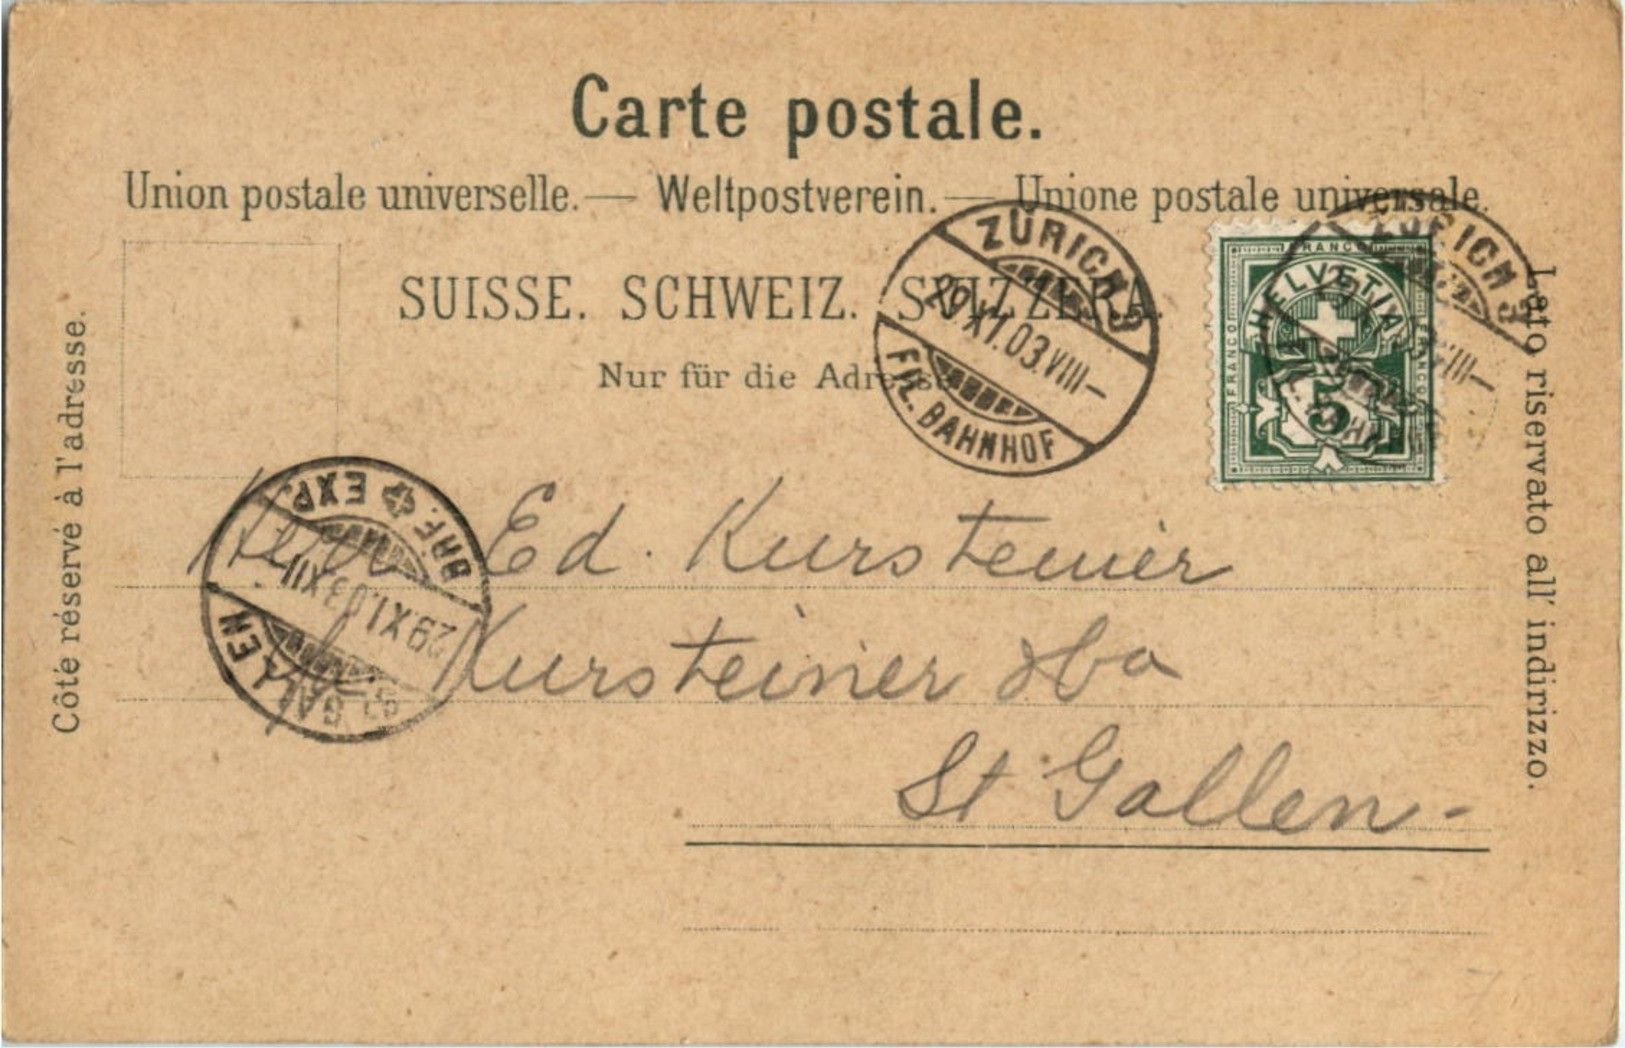 Carte postale.
Union postale universelle. — Weltpostverein. — Unione postale universale.
SUISSE. SCHWEIZ. SVIZZERA.
Nur für die Adresse
Côté réservé à l'adresse.
Lato riservato all' indirizzo.
ZÜRICH 9
29.XI.03.VIII—
FIL. BAHNHOF
FRANCO
HELVETIA
FRANCO
FRANCO
5
ZÜRICH
VIII—
BRF. EXP.
29.XI.03.XII
ST. GALLEN
Herrn Ed. Kursteiner
Kursteiner
St Gallen-